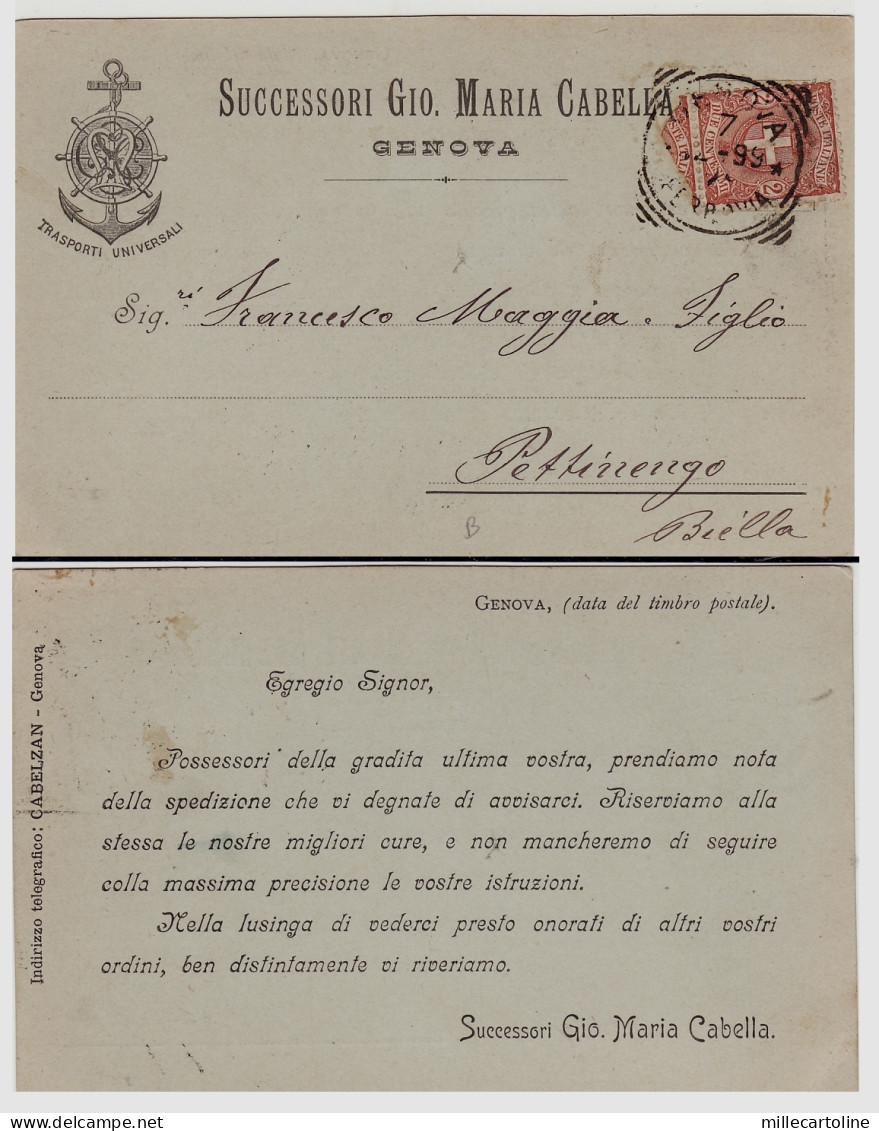 SUCCESSORI GIO. MARIA CABELLA
GENOVA
TRASPORTI UNIVERSALI
GENOVA
7
99
FERROVIA
POSTE ITALIANE
DUE CENTESIMI
2
Sig.ri Francesco Maggia e Figlio
Pettinengo
Biella
B
GENOVA, (data del timbro postale).
Indirizzo telegrafico: CABELZAN - Genova
Egregio Signor,
Possessori della gradita ultima vostra, prendiamo nota
della spedizione che vi degnate di avvisarci. Riserviamo alla
stessa le nostre migliori cure, e non mancheremo di seguire
colla massima precisione le vostre istruzioni.
Nella lusinga di vederci presto onorati di altri vostri
ordini, ben distintamente vi riveriamo.
Successori Gio. Maria Cabella.
millecartoline